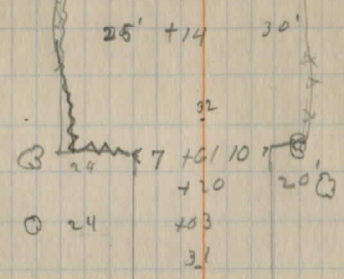 25' +14 30'
32
24 7 +61 10
+20 20'
24 +63
31